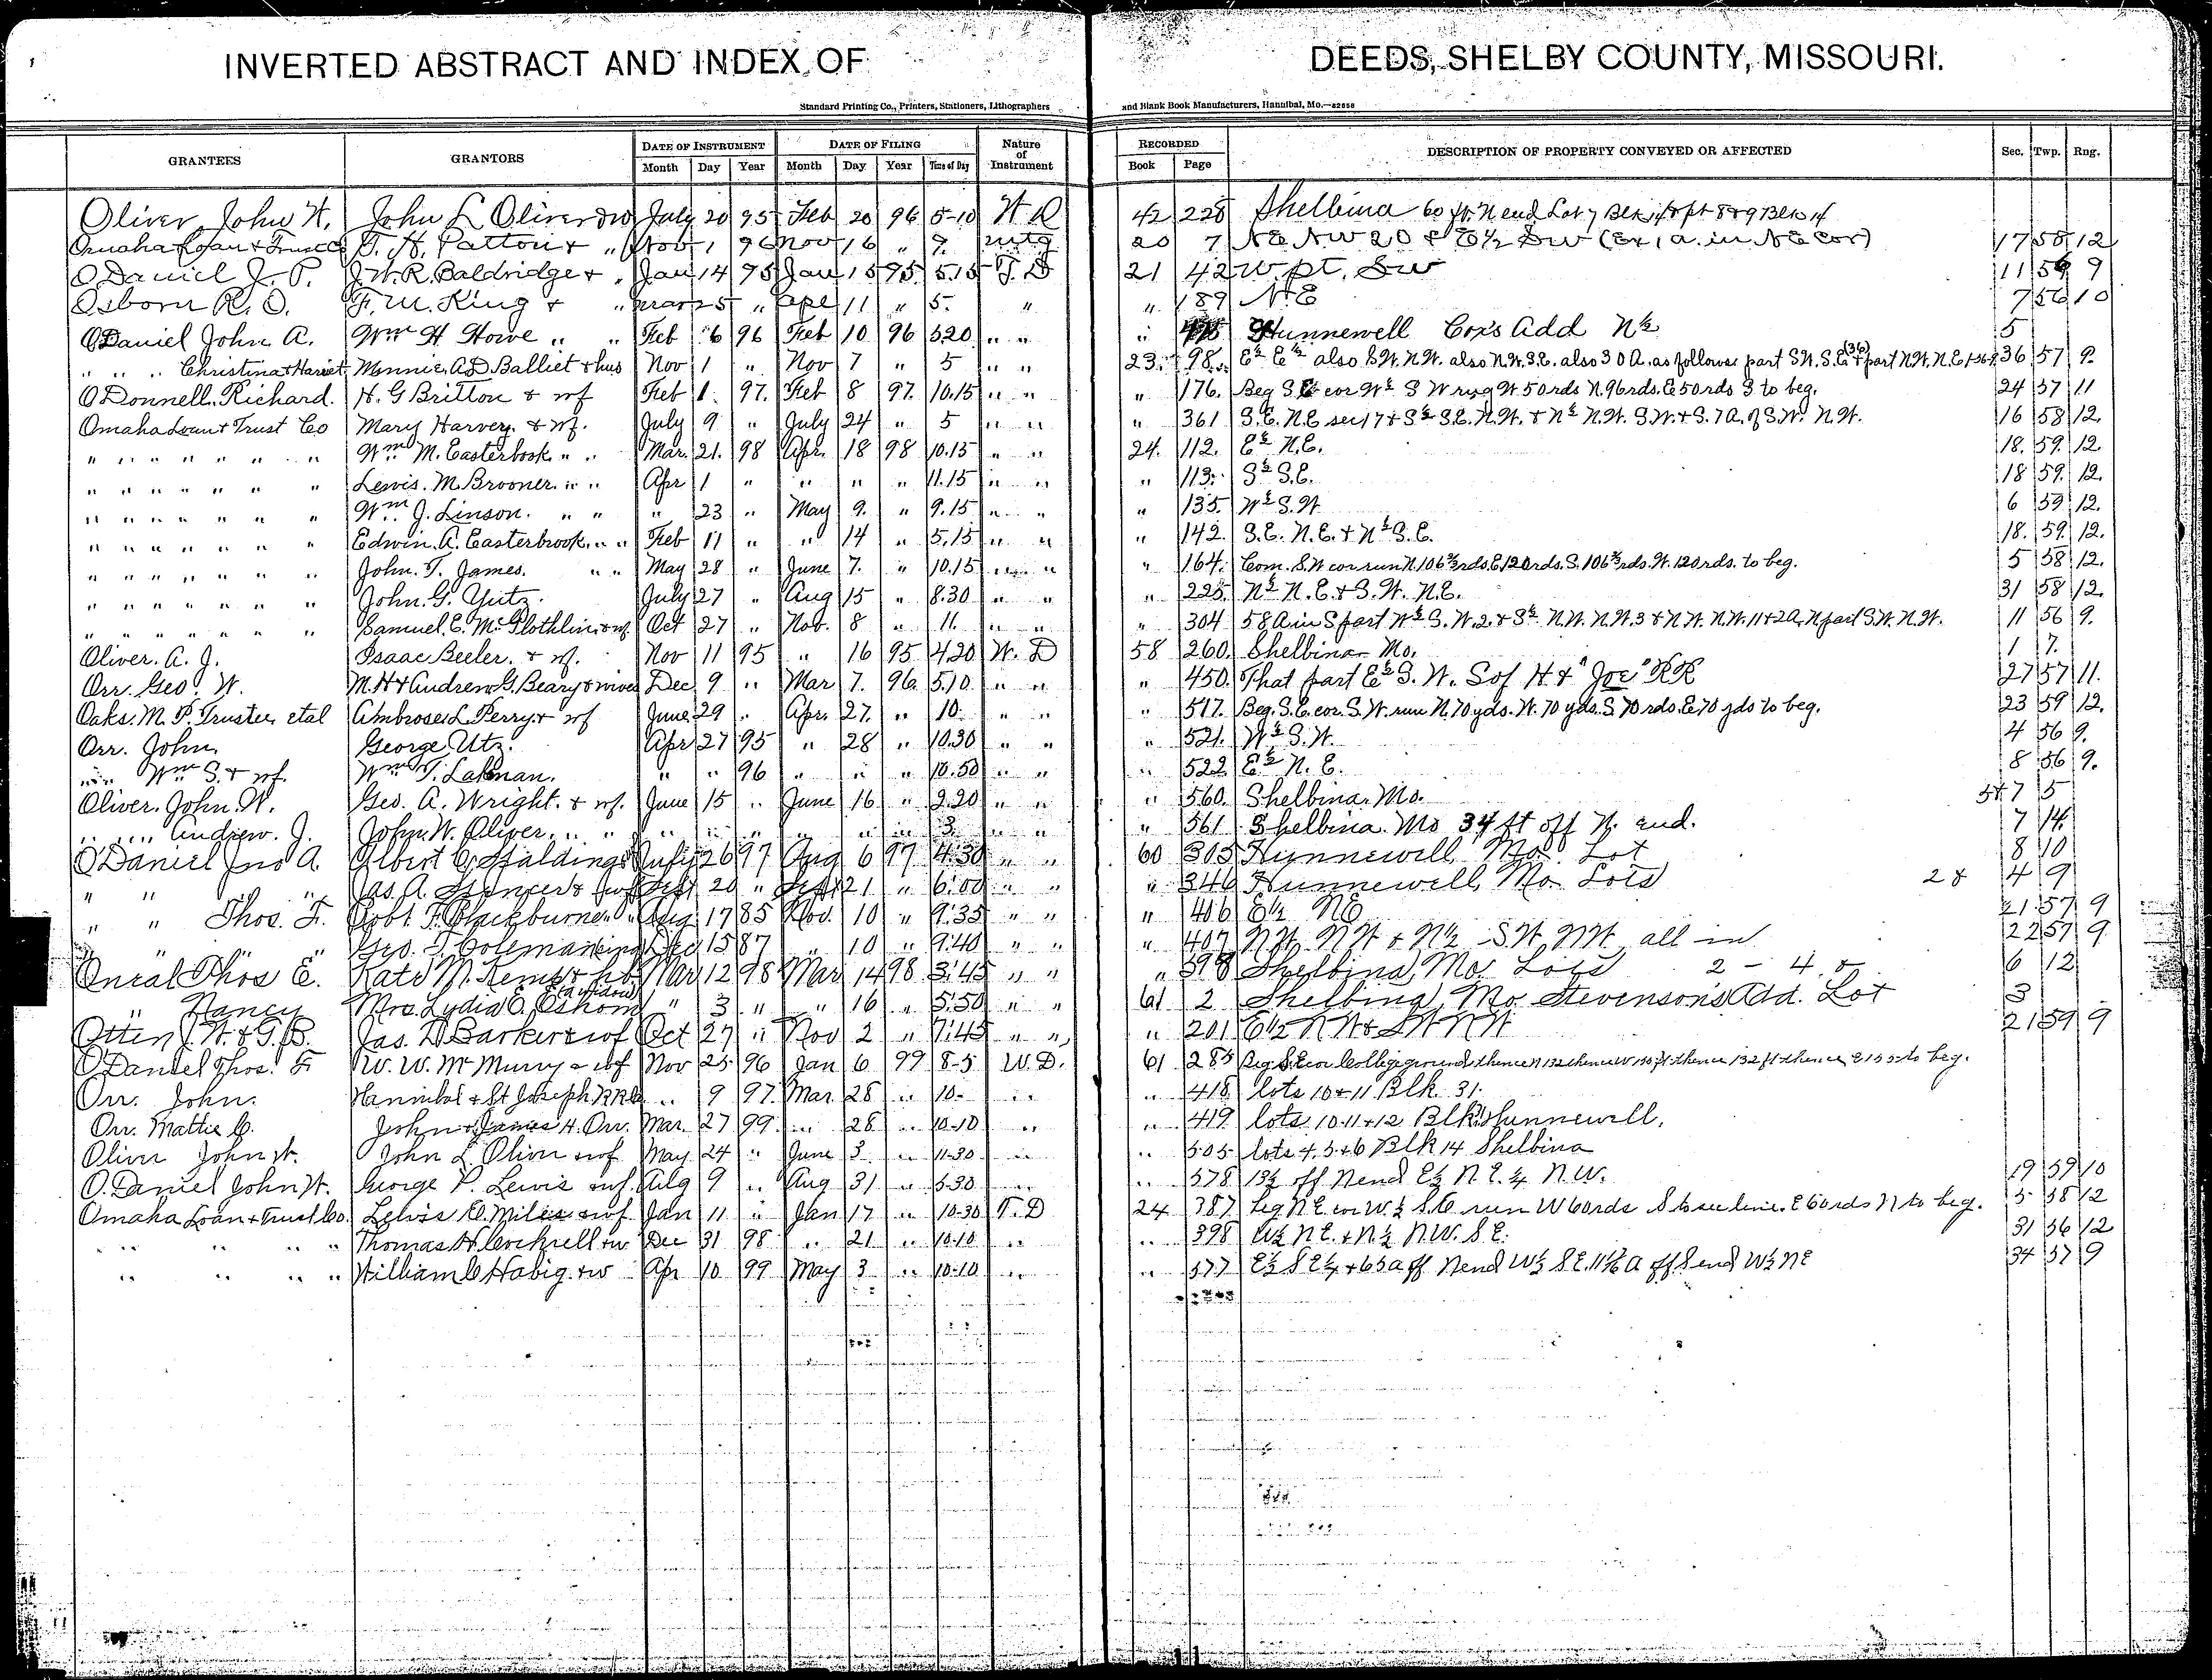 INVERTED ABSTRACT AND INDEX OF DEEDS, SHELBY COUNTY, MISSOURI.
Standard Printing Co., Printers, Stationers, Lithographers and Blank Book Manufacturers, Hannibal, Mo.—82858
GRANTEES GRANTORS DATE OF INSTRUMENT DATE OF FILING Nature of Instrument RECORDED DESCRIPTION OF PROPERTY CONVEYED OR AFFECTED Sec. Twp. Rng.
Month Day Year Month Day Year Time of Day Book Page
Oliver, John W. John L Oliver & w July 20 95 Feb 20 96 5-10 W D 42 228 Shelbina 60 ft N end Lot 7 Blk 14 pt 8 & 9 Blk 14
Omaha Loan & Trust Co T. H. Patton & " Nov 1 96 Nov 16 " 9. mtg 20 7 NE NW 20 & E 1/2 SW (Ex 1 a. in NE cor) 17 58 12
O Daniel J. P. J. W. R. Baldridge & " Jan 14 95 Jan 15 95 5.15 T. D 21 42 W. pt. SW 11 56 9
Osborn R. O. F. M. King & " mar 25 " Apl 11 " 5. " " 189 N.E 7 56 10
O Daniel John A. Wm H Howe " " Feb 6 96 Feb 10 96 5.20 " " " Hunnewell Cox's Add N½ 5
" " " Christina & Hariet Minnie A D Balliet & hus Nov 1 " Nov 7 " 5 " " 23. 98. E½ E½ also S.W. N.W. also N.W. S.E. also 30 A. as follows part S.W. S.E. (36) & part N.W. N.E. 36 57 9.
O Donnell. Richard. H. G Britton & wf Feb 1. 97. Feb 8 97. 10.15 " " " 176. Beg S.E cor W½ S W rng W. 50 rds N. 96 rds. E 50 rds S to beg. 24 57 11
Omaha Loan & Trust Co Mary Harvey. & wf. July 9 " July 24 " 5 " " " 361 S.E. N.E sec 17 & S½ S.E. N.W. & N½ N.W. S.W. & S. 7 A. of S.W. N.W. 16 58 12.
" " " " " " Wm M. Easterbook " " Mar. 21. 98 Apr. 18 98 10.15 " " 24. 112. E½ N.E. 18. 59. 12.
" " " " " " Lewis. M. Brooner. " " Apr 1 " " " " 11.15 " " " 113. S½ S.E. 18 59. 12.
" " " " " " Wm J. Linson. " " " 23 " May 9. " 9.15 " " " 135. W½ S.W. 6 59 12.
" " " " " " Edwin. A. Easterbrook. " " Feb 11 " " 14 " 5.15 " " " 142. S.E. N.E. & N½ S.E. 18. 59. 12.
" " " " " " John. T. James. " " May 28 " June 7. " 10.15 " " " 164. Com. S.W cor run N. 106⅔ rds. E 120 rds. S. 106⅔ rds. W. 120 rds. to beg. 5 58 12.
" " " " " " John. G. Yutz. July 27 " Aug 15 " 8.30 " " " 225. N½ N.E. & S.W. N.E. 31 58 12.
" " " " " " Samuel. E. McGlothlin & wf. Oct 27 " Nov. 8 " 11. " " " 304 58 A in S part W½ S.W. 2. & S½ N.W. N.W. 3 & N.W. N.W. 11 & 2 A. N part S.W. N.W. 11 56 9.
Oliver. A. J. Isaac Beeler. & wf. Nov 11 95 " 16 95 4.20 W. D 58 260. Shelbina Mo. 1 7.
Orr. Geo. W. M.H & Andrew G. Beary & wives Dec. 9 " Mar 7. 96. 5.10 " " " 450. That part E½ S.W. S of H & "Joe" RR 27 57 11.
Oaks. M. P. Trustee, et al Ambrose L Perry & wf June 29 " Apr. 27. " 10. " " " 517. Beg. S.E. cor. S.W. run N. 70 yds. W. 70 yds. S. 70 rds. E 70 yds to beg. 23 59 12.
Orr. John. George Utz. Apr 27 95 " 28 " 10.30 " " " 521. W½ S.W. 4 56 9.
" Wm S. & wf. Wm T. Lakenan. " " 96 " " " 10.50 " " " 522. E½ N.E. 8 56 9.
Oliver. John. W. Geo. A. Wright. & wf. June 15 " June 16 " 2.20 " " " 560. Shelbina. Mo. 5
" Andrew. J. John. W. Oliver. " " " " " " " " 3. " " " 561. Shelbina. Mo 34 ft off N. end. 7 14.
O Daniel Jno A. Albert C. Spalding July 26 97 Aug 6 97 4.30 " " 60 305 Hunnewell Mo. Lot 8 10
" " " Jas. A. Spencer & wf Sept 20 " Sept 21 " 6.00 " " " 346 Hunnewell, Mo. Lots 28 4 9
" " Thos. F. Robt. F. Blackburne " Aug 17 85 Nov. 10 " 9.35 " " " 406 E½ NE 21 57 9
" " " Geo. T. Coleman Dec 15 87 " 10 " 9.40 " " " 407 NW NW & N½ SW NW all in 22 57 9.
Thos E. Kate M. Kemp & hb Mar 12 98 Mar 14 98 3.45 " " " 398 Shelbina, Mo. Lots 2 - 4. 6 12
" Nancy Mrs. Lydia O. Oshom " 3 " " 16 " 5.50 " " 61 2 Shelbina, Mo Stevensons Add. Lot 3
Otten J. W. & G. B. Jas. D Barker & wf Oct 27 " Nov 2 " 7.45 " " " 201 E½ NW & SW NW 21 59 9
O Daniel Thos. F W. W. McMurry & wf Nov 25 96 Jan 6 99 8-5 W. D. 61 285 Beg S.E cor College ground thence N 132 thence W 155 ft thence 132 ft thence E 155 to beg.
Orr. John. Hannibal & St Joseph RR Co " 9 97. Mar. 28 " 10- " " 418 lots 10 & 11 Blk. 31.
Orr. Mattie C. John & James H. Orr. Mar. 27 99. " 28 " 10-10 " " 419 lots 10-11 & 12 Blk 31 Hunnewell.
Oliver John W. John L Oliver & wf May 24 " June 3 " 11-30 " " 505 lots 4. 5 & 6 Blk 14 Shelbina
O. Daniel John W. George P. Lewis & wf Aug 9 " Aug 31 " 5-30 " " 578 13½ off N end E½ N.E. ¼ N.W. 19 59 10
Omaha Loan & Trust Co. Lewis E. Miles & wf Jan 11 " Jan 17 " 10-30 T. D 24 387 beg N.E. cor W.½ S.E run W 60 rds S to sec line. E 60 rds N to beg. 5 58 12
" " " " Thomas H. Cockrell & w Dec 31 98 " 21 " 10-10 " " 398 W½ N.E. & N.½ N.W. S.E. 31 56 12
" " " " William C Habig & w Apr 10 99 May 3 " 10-10 " " 577 E½ S E¼ & 65 a off N end W½ S E. 11½ a off S end W½ NE 34 57 9